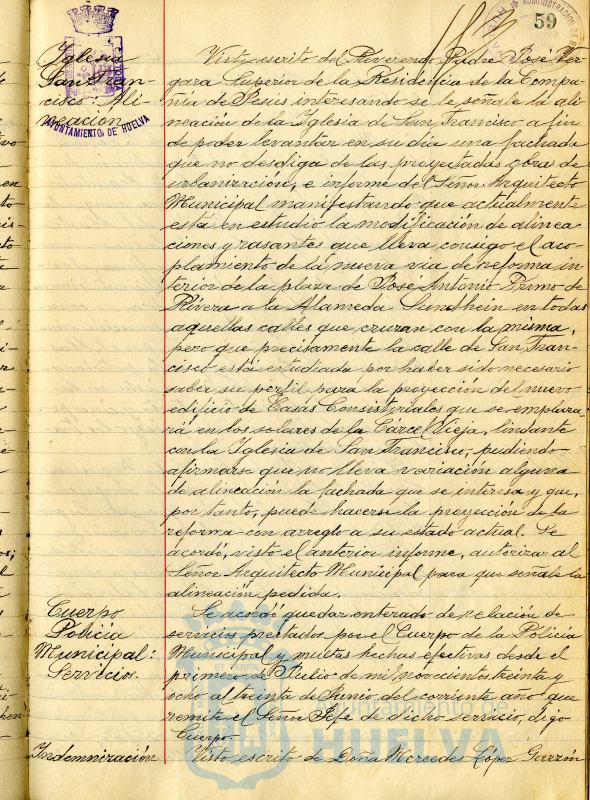 59
ADMINISTRACION DE
AYUNTAMIENTO DE HUELVA
Iglesia
San Fran-
cisco: Ali-
neación
Visto escrito del Reverendo Padre José Ver-
gara Superior de la Residencia de la Compa-
ñia de Jesús interesando se le señale la ali-
neación de la Iglesia de San Francisco a fin
de poder levantar en su dia una fachada
que no desdiga de las proyectadas obras de
urbanización, e informe del Señor Arquitecto
Municipal manifestando que actualmente
está en estudio la modificación de alinea-
ciones y rasantes que lleva consigo el aco-
plamiento de la nueva via de reforma in-
terior de la plaza de Jose Antonio Primo de
Rivera a la Alameda Sundhein en todas
aquellas calles que cruzan con la misma,
pero que precisamente la calle de San Fran-
cisco está estudiada por haber sido necesario
saber su perfil para la proyección del nuevo
edificio de Casas Consistoriales que se emplaza-
rá en los solares de la Cárcel Vieja, lindante
con la Iglesia de San Francisco, pudiendo
afirmarse que no lleva variación alguna
de alineación la fachada que se interesa y que,
por tanto, puede hacerse la proyección de la
reforma con arreglo a su estado actual. Se
acordó, visto el anterior informe, autorizar al
Señor Arquitecto Municipal para que señale la
alineación pedida.
Cuerpo
Policia
Municipal:
Servicios.
Se acordó quedar enterado de relación de
servicios prestados por el Cuerpo de la Policia
Municipal y multas hechas efectivas desde el
primero de Julio de mil novecientos treinta y
ocho al treinta de Junio del corriente año que
remite el Señor Jefe de dicho servicio, digo
Cuerpo.
Indemnización
Visto escrito de Doña Mercedes López Garzón
Ayuntamiento de
HUELVA